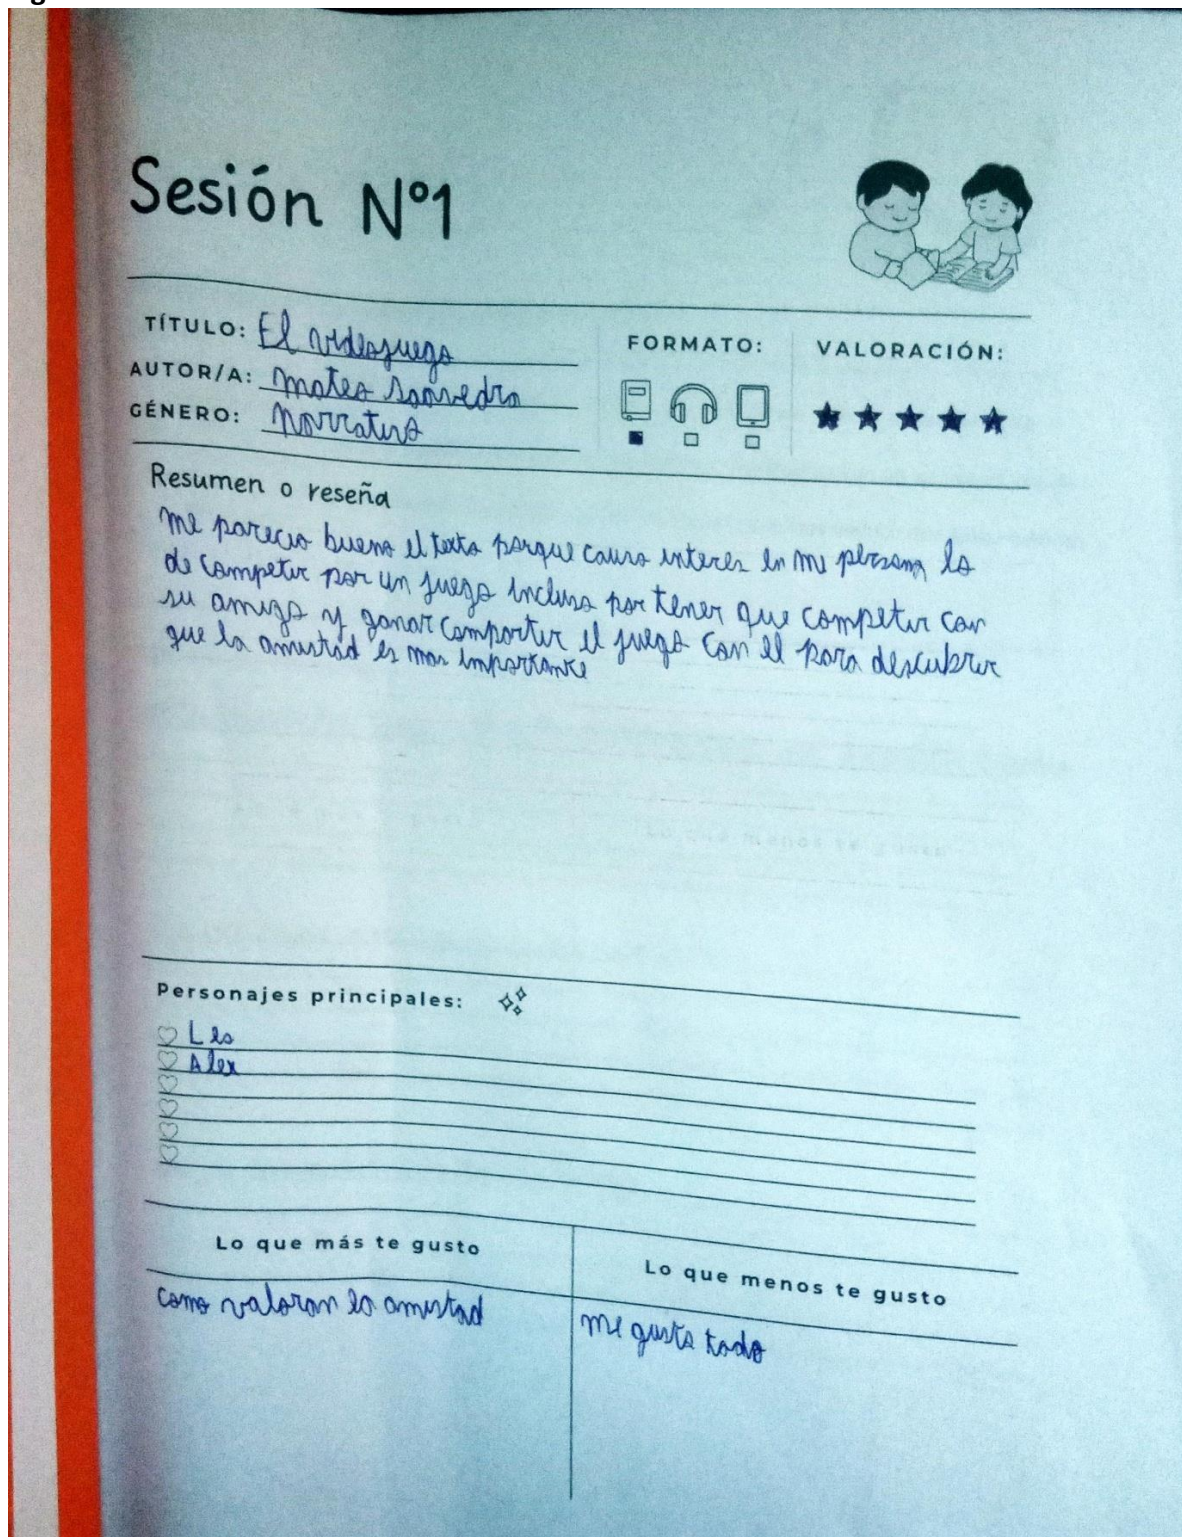 Sesión N°1
TÍTULO: El videojuego
AUTOR/A: Mateo Saavedra
GÉNERO: Narrativa
FORMATO:
VALORACIÓN:
Resumen o reseña
Me parecio bueno el texto porque causo interes en mi persona lo
de competir por un juego incluso por tener que competir con
su amigo y ganar compartir el juego con el para descubrir
que la amistad es mas importante
Personajes principales:
Leo
Alex
Lo que más te gusto
como valoran la amistad
Lo que menos te gusto
me gusto todo